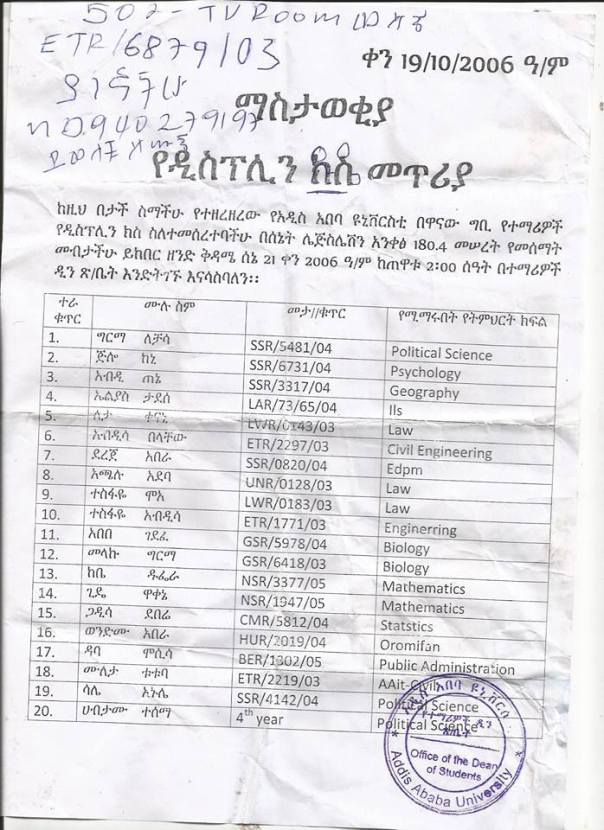 502 - TV Room
ETR/6879/03
0940279197
ቀን 19/10/2006 ዓ/ም
ማስታወቂያ
የዲስፕሊን ክስ መጥሪያ
ከዚህ በታች ስማችሁ የተዘረዘረው የአዲስ አበባ ዩኒቨርስቲ በዋናው ግቢ የተማሪዎች
የዲስፕሊን ክስ ስለተመሰረተባችሁ በሰኔት ሌጅስሌሽን አንቀፅ 180.4 መሠረት የመሰማት
መብታችሁ ይከበር ዘንድ ቅዳሜ ሰኔ 21 ቀን 2006 ዓ/ም ከጠዋቱ 2:00 ሰዓት በተማሪዎች
ዲን ጽ/ቤት እንድትገኙ እናሳስባለን፡፡
ተራ ቁጥር ሙሉ ስም መታ//ቁጥር የሚማሩበት የትምህርት ክፍል
1. ግርማ ለቻሳ SSR/5481/04 Political Science
2. ጅሎ ከኒ SSR/6731/04 Psychology
3. አብዲ ጠኔ SSR/3317/04 Geography
4. ኤልያስ ታደሰ LAR/73/65/04 Ils
5. ሊታ ተናኒ LWR/0143/03 Law
6. አብዲሳ በላቸው ETR/2297/03 Civil Engineering
7. ደረጀ አበራ SSR/0820/04 Edpm
8. አጫሉ አደባ UNR/0128/03 Law
9. ተስፋዬ ሞአ LWR/0183/03 Law
10. ተስፋዬ አብዲሳ ETR/1771/03 Enginerring
11. አበበ ገደፈ GSR/5978/04 Biology
12. መላኩ ግርማ GSR/6418/03 Biology
13. ከቤ ዱፌራ NSR/3377/05 Mathematics
14. ጊዴ ዋቀኔ NSR/1947/05 Mathematics
15. ጋዲሳ ደበሬ CMR/5812/04 Statstics
16. ወንድሙ አበራ HUR/2019/04 Oromifan
17. ዳባ ሞሲሳ BER/1302/05 Public Administration
18. ሙሊታ ቱቱባ ETR/2219/03 AAit-Civil
19. ሳሌ አኑሌ SSR/4142/04 Political Science
20. ሀብታሙ ተሰማ 4th year Political Science
የአዲስ አበባ ዩኒቨርሲቲ
የተማሪዎች ዲን
Office of the Dean
of Students
Addis Ababa University